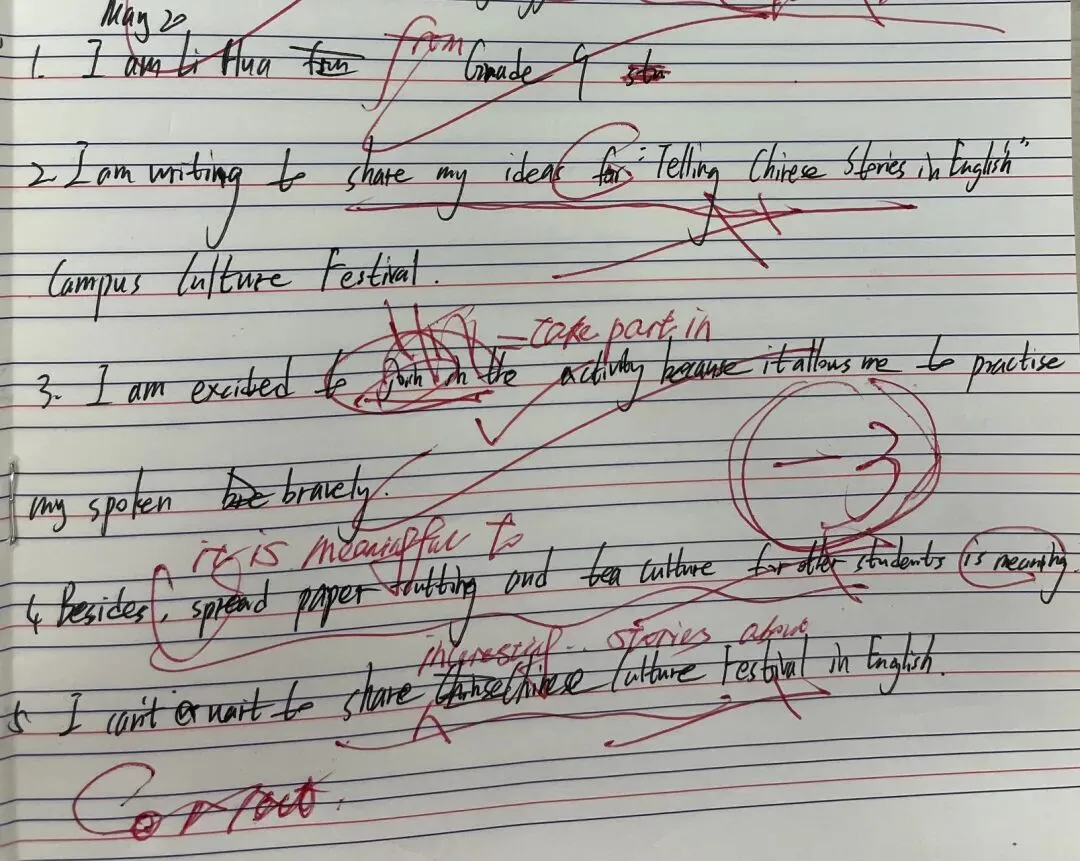 May 20
1. I am Li Hua from Grade 9
2 I am writing to share my ideas for "Telling Chinese Stories in English"
Campus Culture Festival.
= take part in
3. I am excited to join in the activity because it allows me to practise
-3
my spoken bravely.
it is meaningful to
4 Besides, spread paper cutting and tea culture for other students is meaning.
interesting .. stories about
5 I can't wait to share Chinese Culture Festival in English.
Correct.